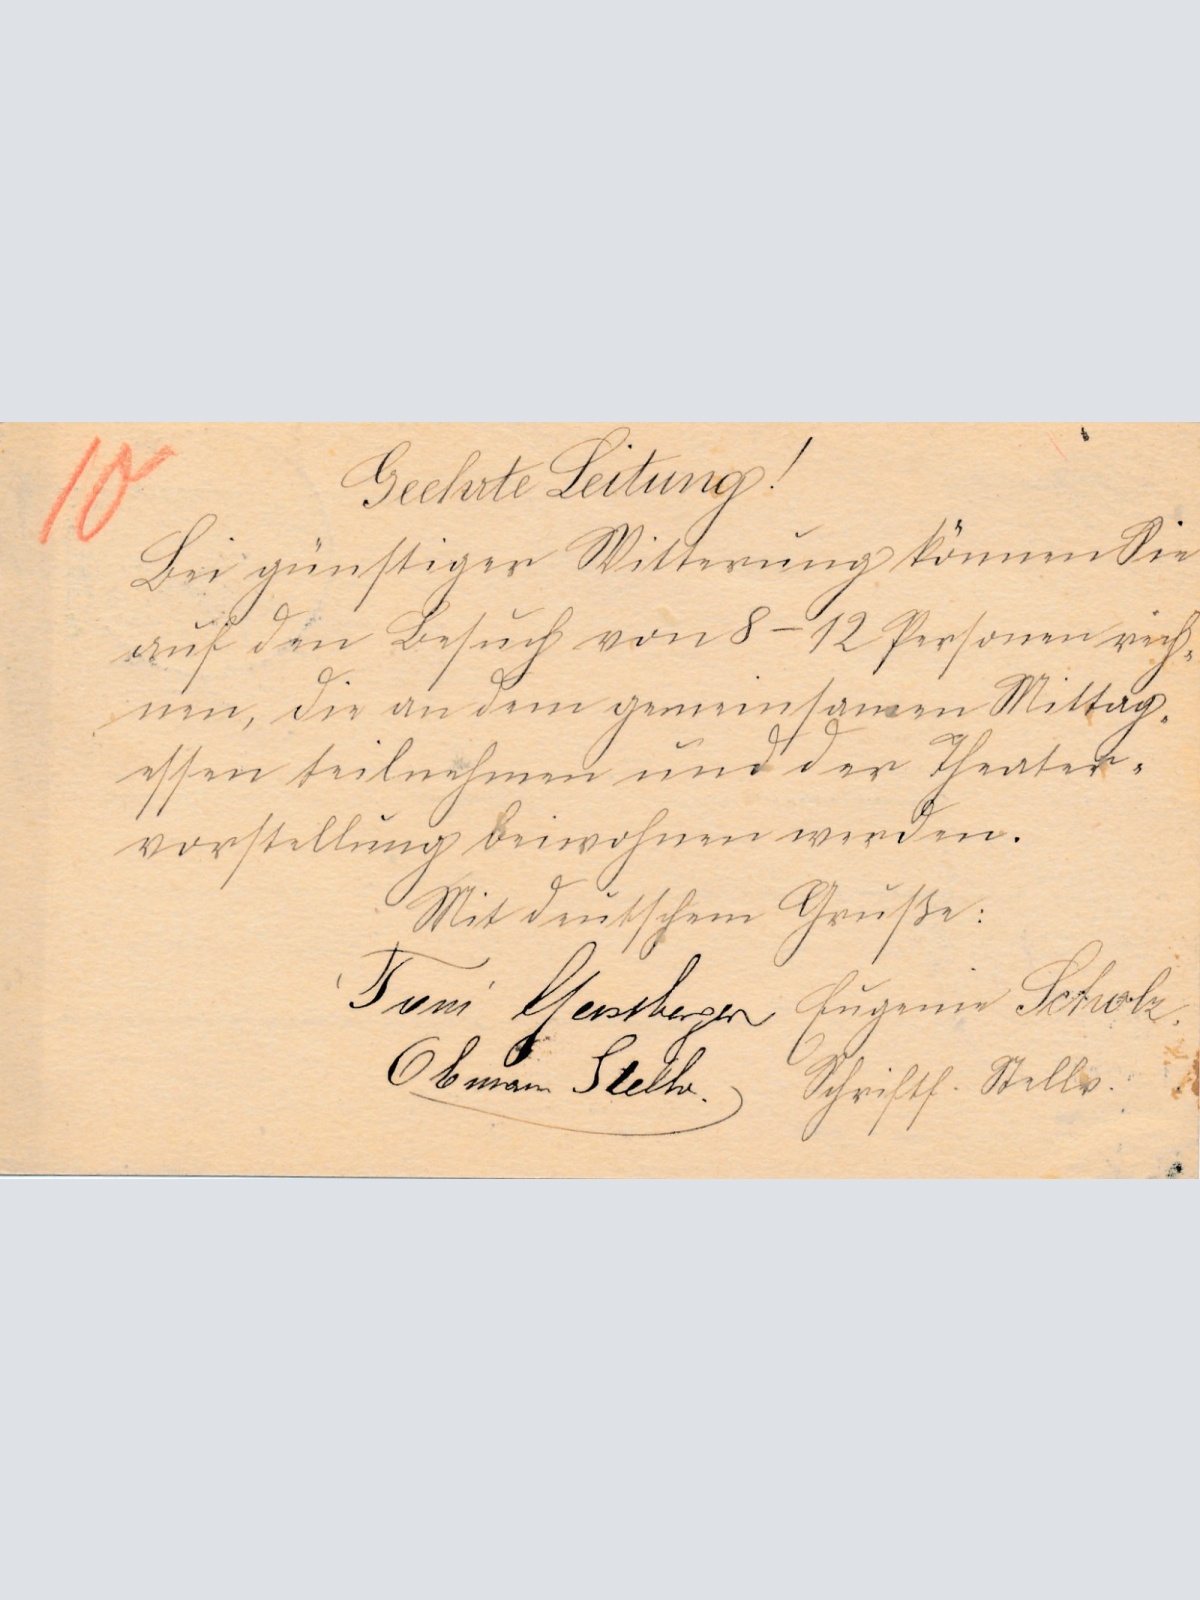 10
Geehrte Leitung!
Bei günstiger Witterung können Sie
auf den Besuch von 8 – 12 Personen rech-
nen, die an dem gemeinsamen Mittag-
essen teilnehmen und der Theater-
vorstellung beiwohnen werden.
Mit deutschem Gruße:
Toni Eugenie Scholz.
Obmann Stellv. Schriftf. Stellv.